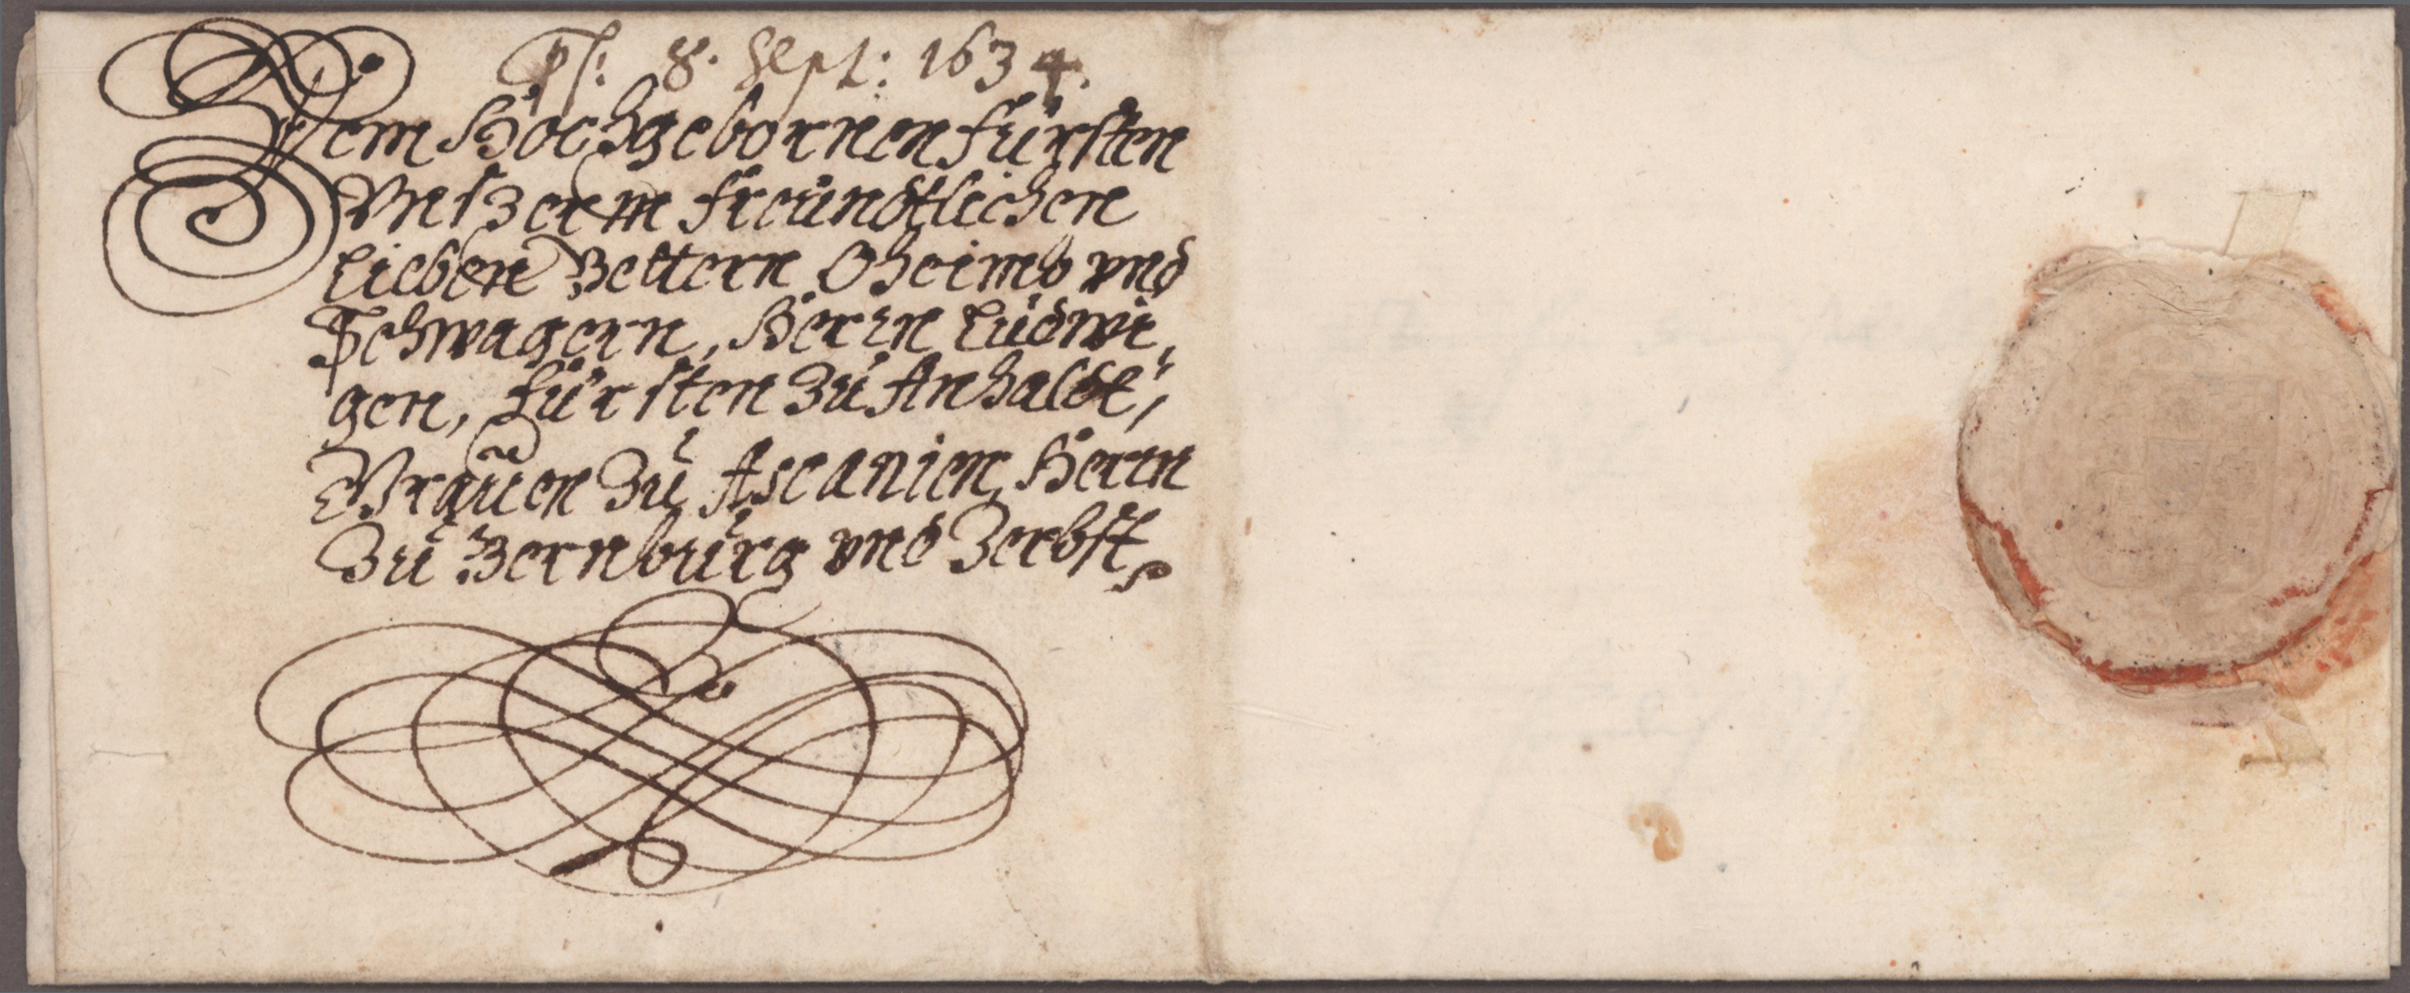 Ps: 8. Sept: 1634.
Dem Hochgebornen Fürsten
Vnserm freündtlichen
lieben Vettern Oheimb vnd
Schwagern, Herrn Ludwi,
gen, Fürsten zu Anhaldt,
Grauen zu Ascanien, Herrn
zu Bernburg vnd Zerbst